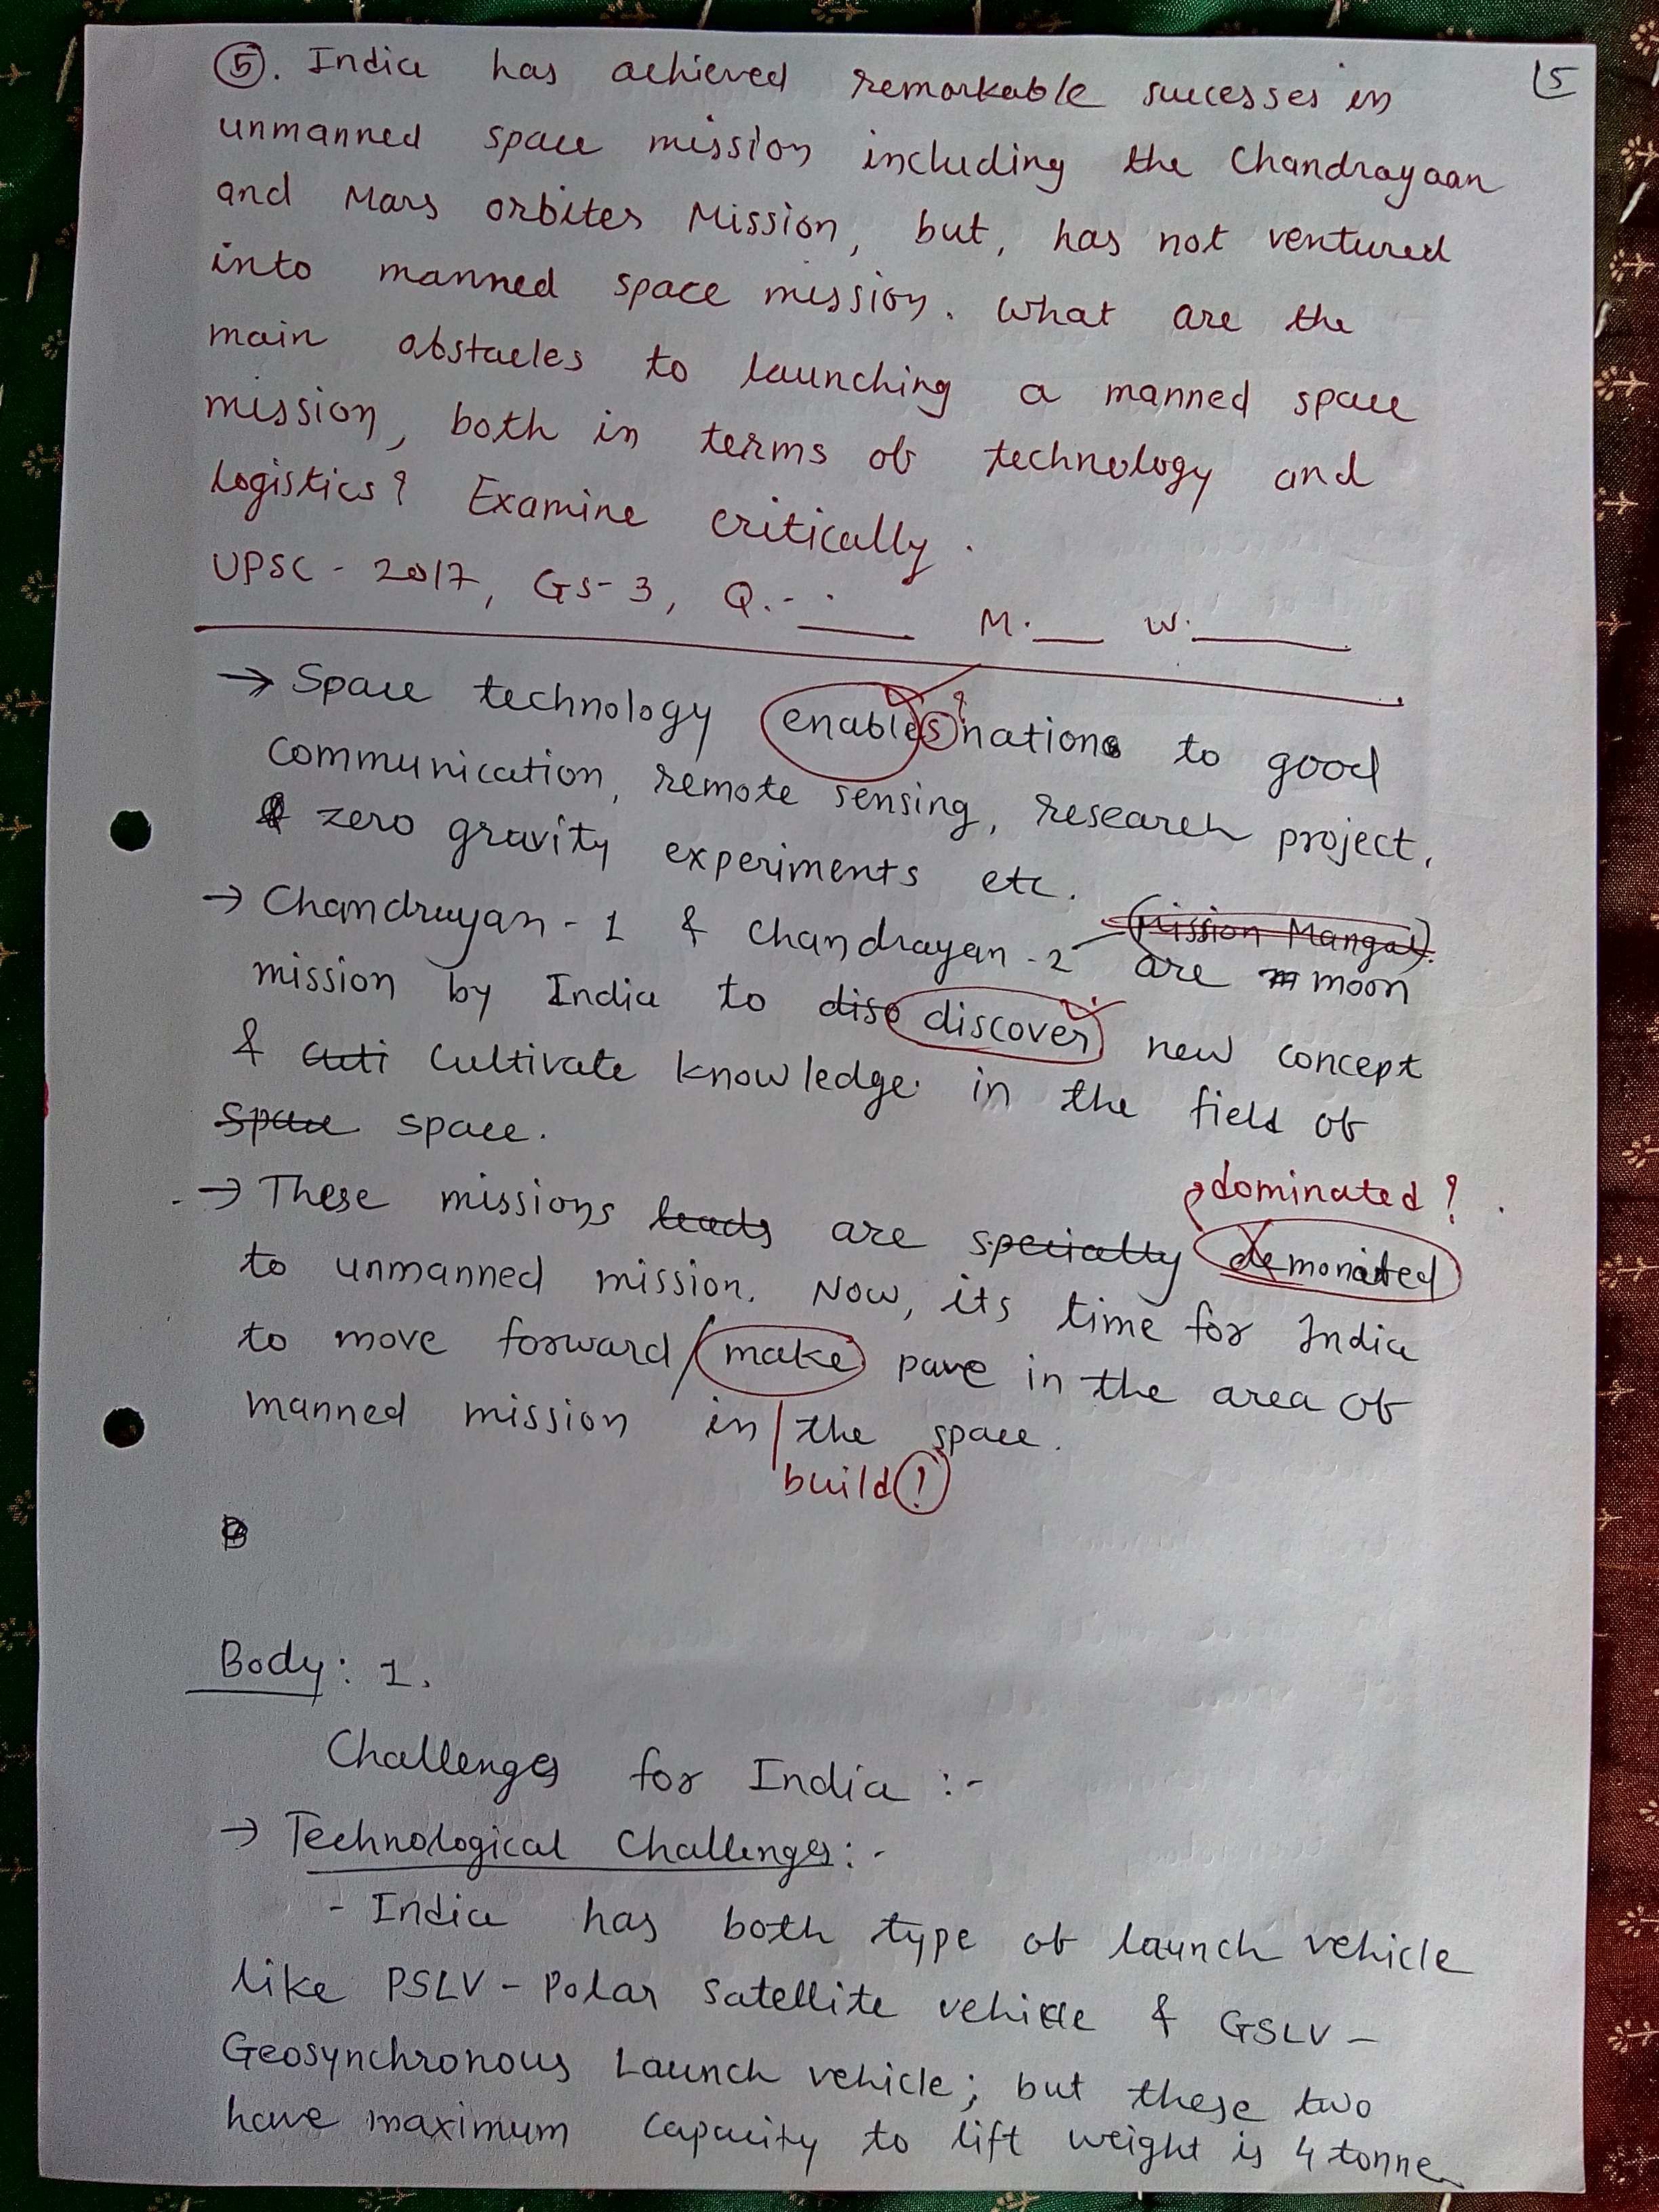 ⑤. India has achieved remarkable successes in
15
unmanned space mission including the Chandrayaan
and Mars orbiter Mission, but, has not ventured
into manned space mission. What are the
main obstacles to launching a manned space
mission, both in terms of technology and
Logistics? Examine critically.
UPSC - 2017, GS-3, Q. - ____ M. __ W. ____
→ Space technology enables ? nations to good
communication, remote sensing, research project,
& zero gravity experiments etc.
→ Chandrayan - 1 & Chandrayan - 2 (Mission Mangal) are moon
mission by India to disc discover new concept
& culti cultivate knowledge in the field of
space space.
dominated ?
→ These missions leads are specially demonated
to unmanned mission. Now, its time for India
to move forward / make pave in the area of
manned mission in the space.
build ?
B
Body: 1.
Challenges for India :-
→ Technological Challenges: -
- India has both type of launch vehicle
like PSLV - Polar Satellite vehicle & GSLV -
Geosynchronous Launch vehicle; but these two
have maximum capacity to lift weight is 4 tonne